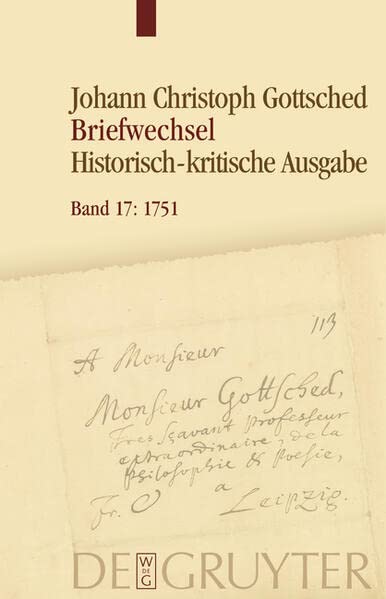 Johann Christoph Gottsched
Briefwechsel
Historisch-kritische Ausgabe
Band 17: 1751
113
A Monsieur
Monsieur Gottsched,
Tres Sçavant Professeur
extraordinaire, de la
Philosophie & Poesie,
Fr. a
Leipzig.
W
DE
G
DE GRUYTER